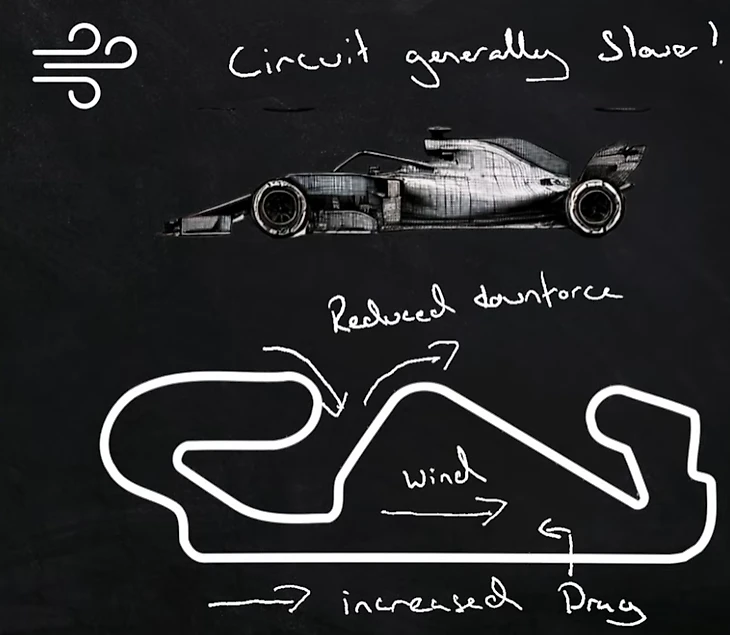 Circuit generally Slower!
Reduced downforce
Wind
increased Drag